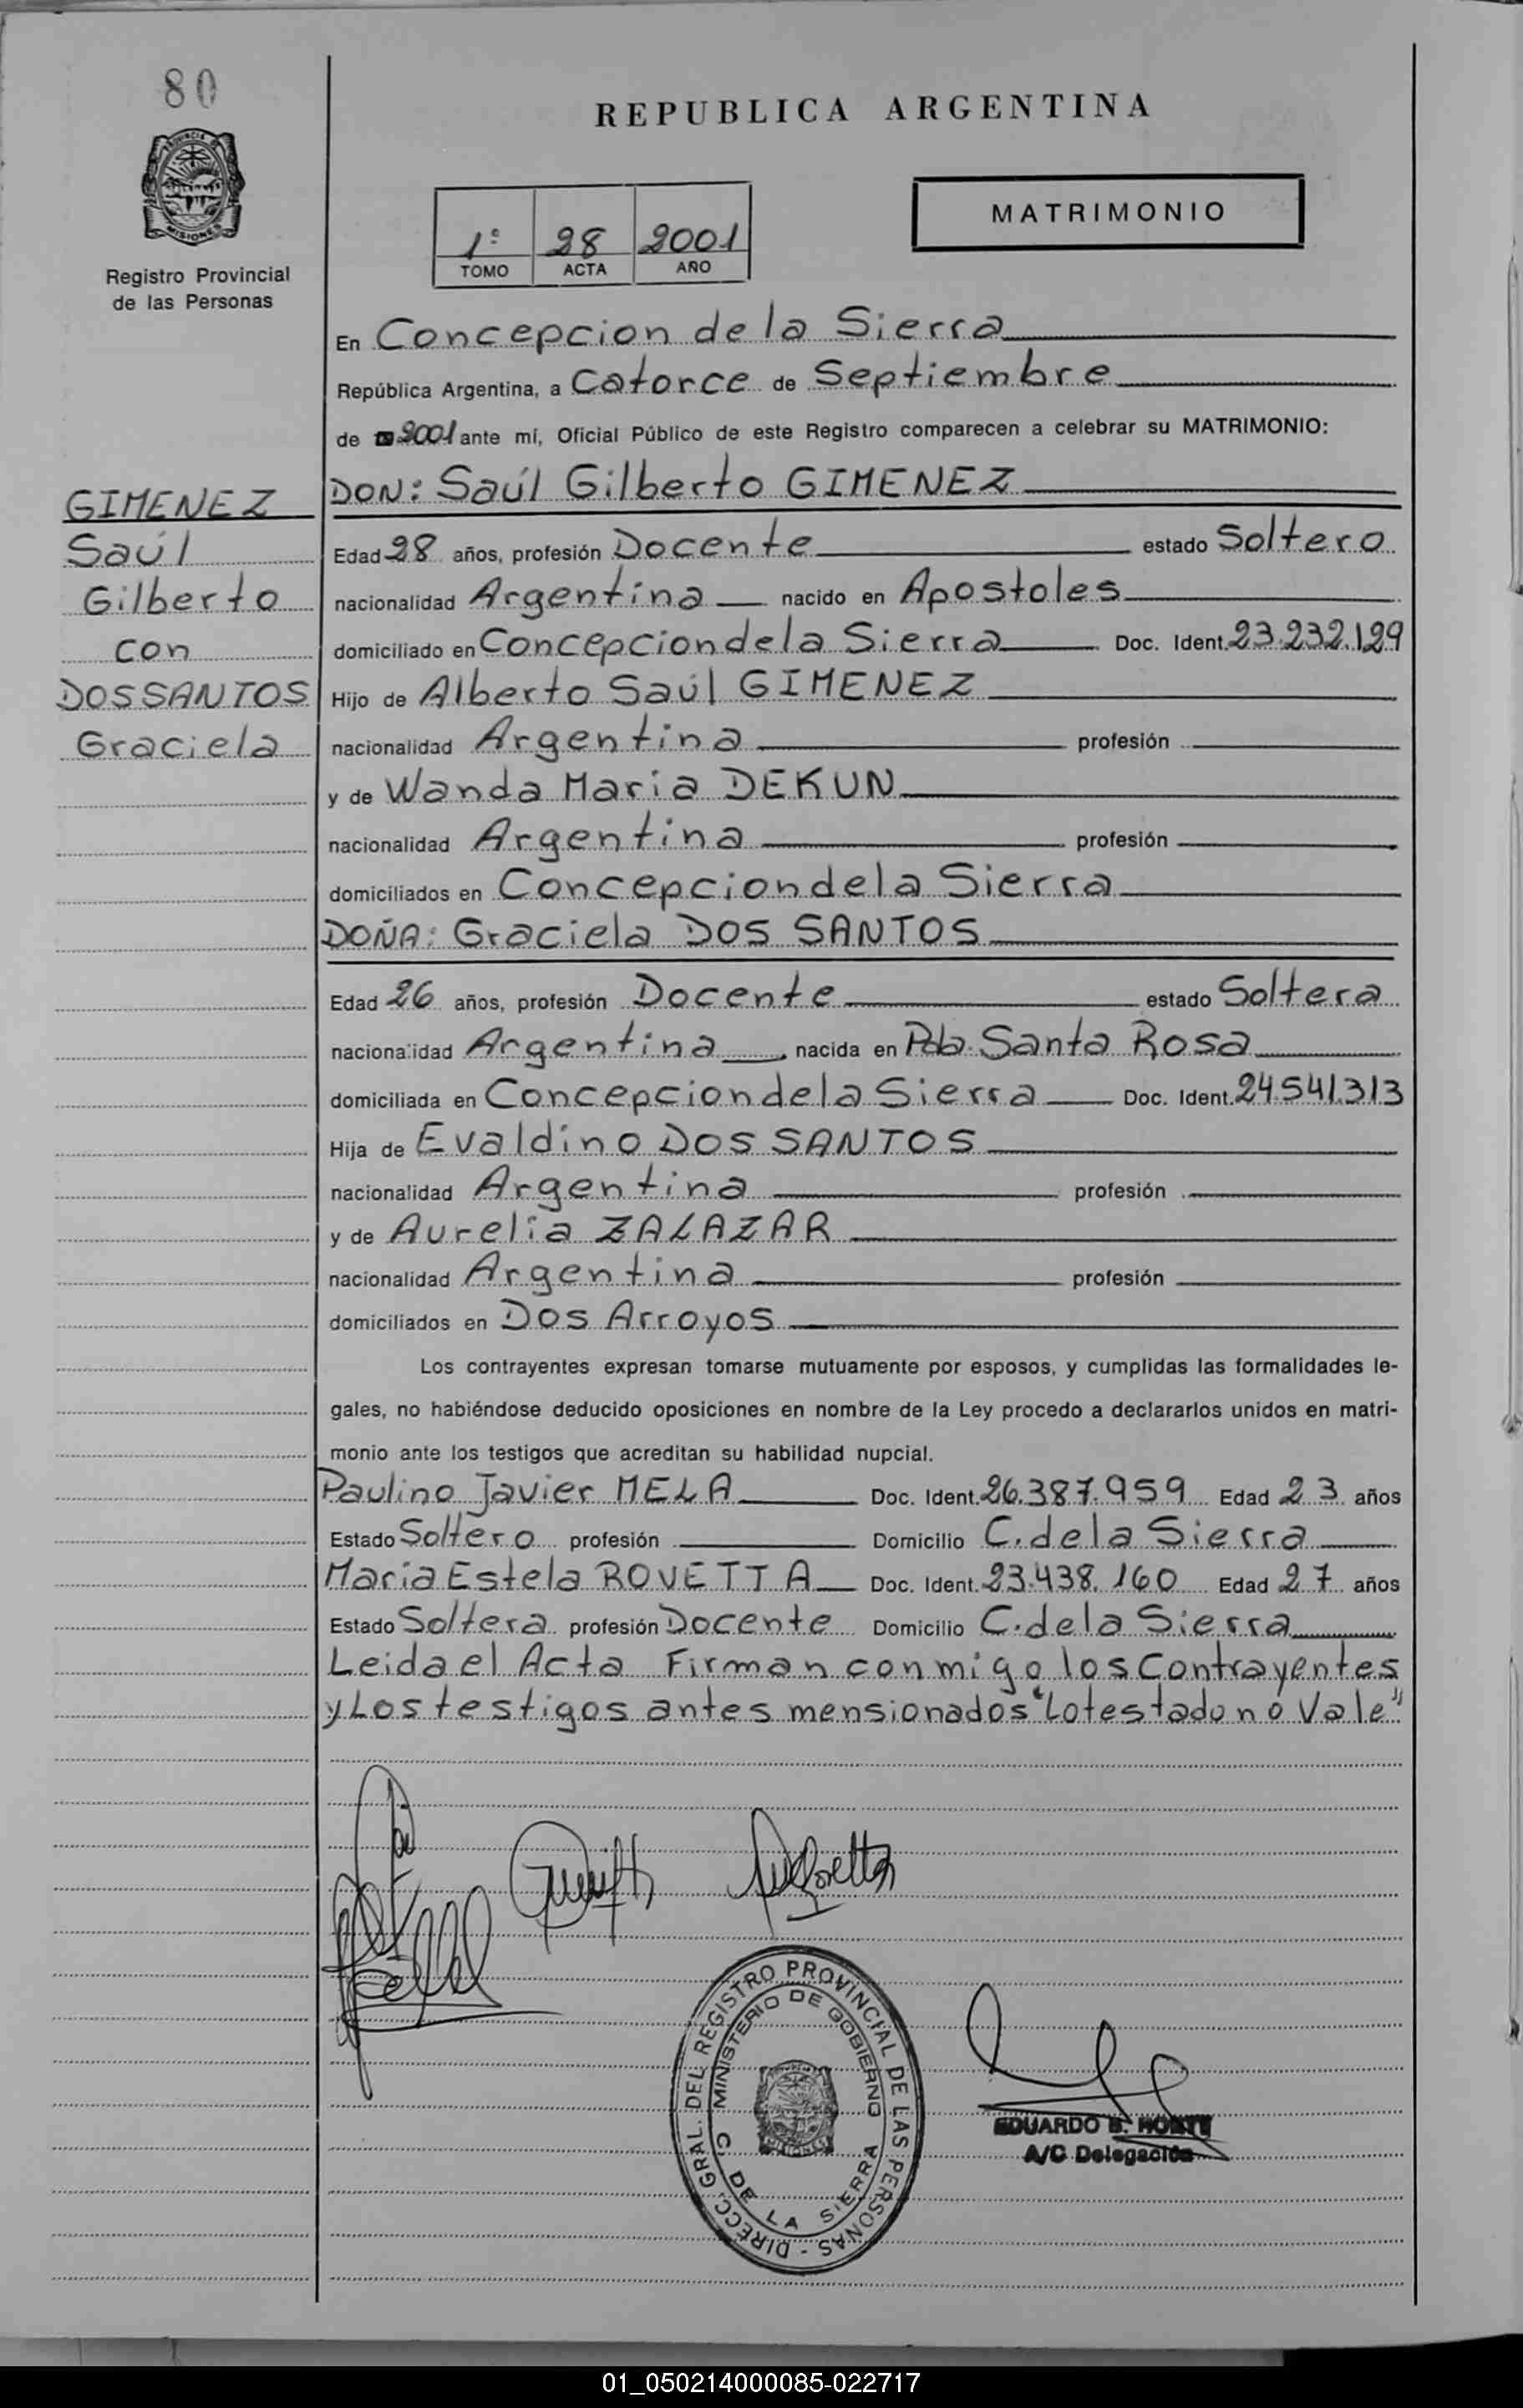 80
REPUBLICA ARGENTINA
PROVINCIA
MISIONES
Registro Provincial
de las Personas
MATRIMONIO
1º 28 2001
TOMO ACTA AÑO
En Concepcion de la Sierra
República Argentina, a Catorce de Septiembre
de 2001 ante mí, Oficial Público de este Registro comparecen a celebrar su MATRIMONIO:
GIMENEZ
Saúl
Gilberto
con
DOS SANTOS
Graciela
DON: Saúl Gilberto GIMENEZ
Edad 28 años, profesión Docente estado Soltero
nacionalidad Argentina nacido en Apostoles
domiciliado en Concepcion de la Sierra Doc. Ident. 23.232.129
Hijo de Alberto Saúl GIMENEZ
nacionalidad Argentina profesión
y de Wanda Maria DEKUN
nacionalidad Argentina profesión
domiciliados en Concepcion de la Sierra
DOÑA: Graciela DOS SANTOS
Edad 26 años, profesión Docente estado Soltera
nacionalidad Argentina, nacida en Pda. Santa Rosa
domiciliada en Concepcion de la Sierra Doc. Ident. 24.541.313
Hija de Evaldino DOS SANTOS
nacionalidad Argentina profesión
y de Aurelia ZALAZAR
nacionalidad Argentina profesión
domiciliados en Dos Arroyos
Los contrayentes expresan tomarse mutuamente por esposos, y cumplidas las formalidades le-
gales, no habiéndose deducido oposiciones en nombre de la Ley procedo a declararlos unidos en matri-
monio ante los testigos que acreditan su habilidad nupcial.
Paulino Javier MELA Doc. Ident. 26.387.959 Edad 23 años
Estado Soltero profesión Domicilio C. de la Sierra
Maria Estela ROVETTA Doc. Ident. 23.438.160 Edad 27 años
Estado Soltera profesión Docente Domicilio C. de la Sierra
Leida el Acta Firman con migo los Contrayentes
y Los testigos antes mensionados "Lo testado no Vale"
DIRECC. GRAL. DEL REGISTRO PROVINCIAL DE LAS PERSONAS -
MINISTERIO DE GOBIERNO
C DE LA SIERRA
EDUARDO B.
A/C Delegación
01_050214000085-022717